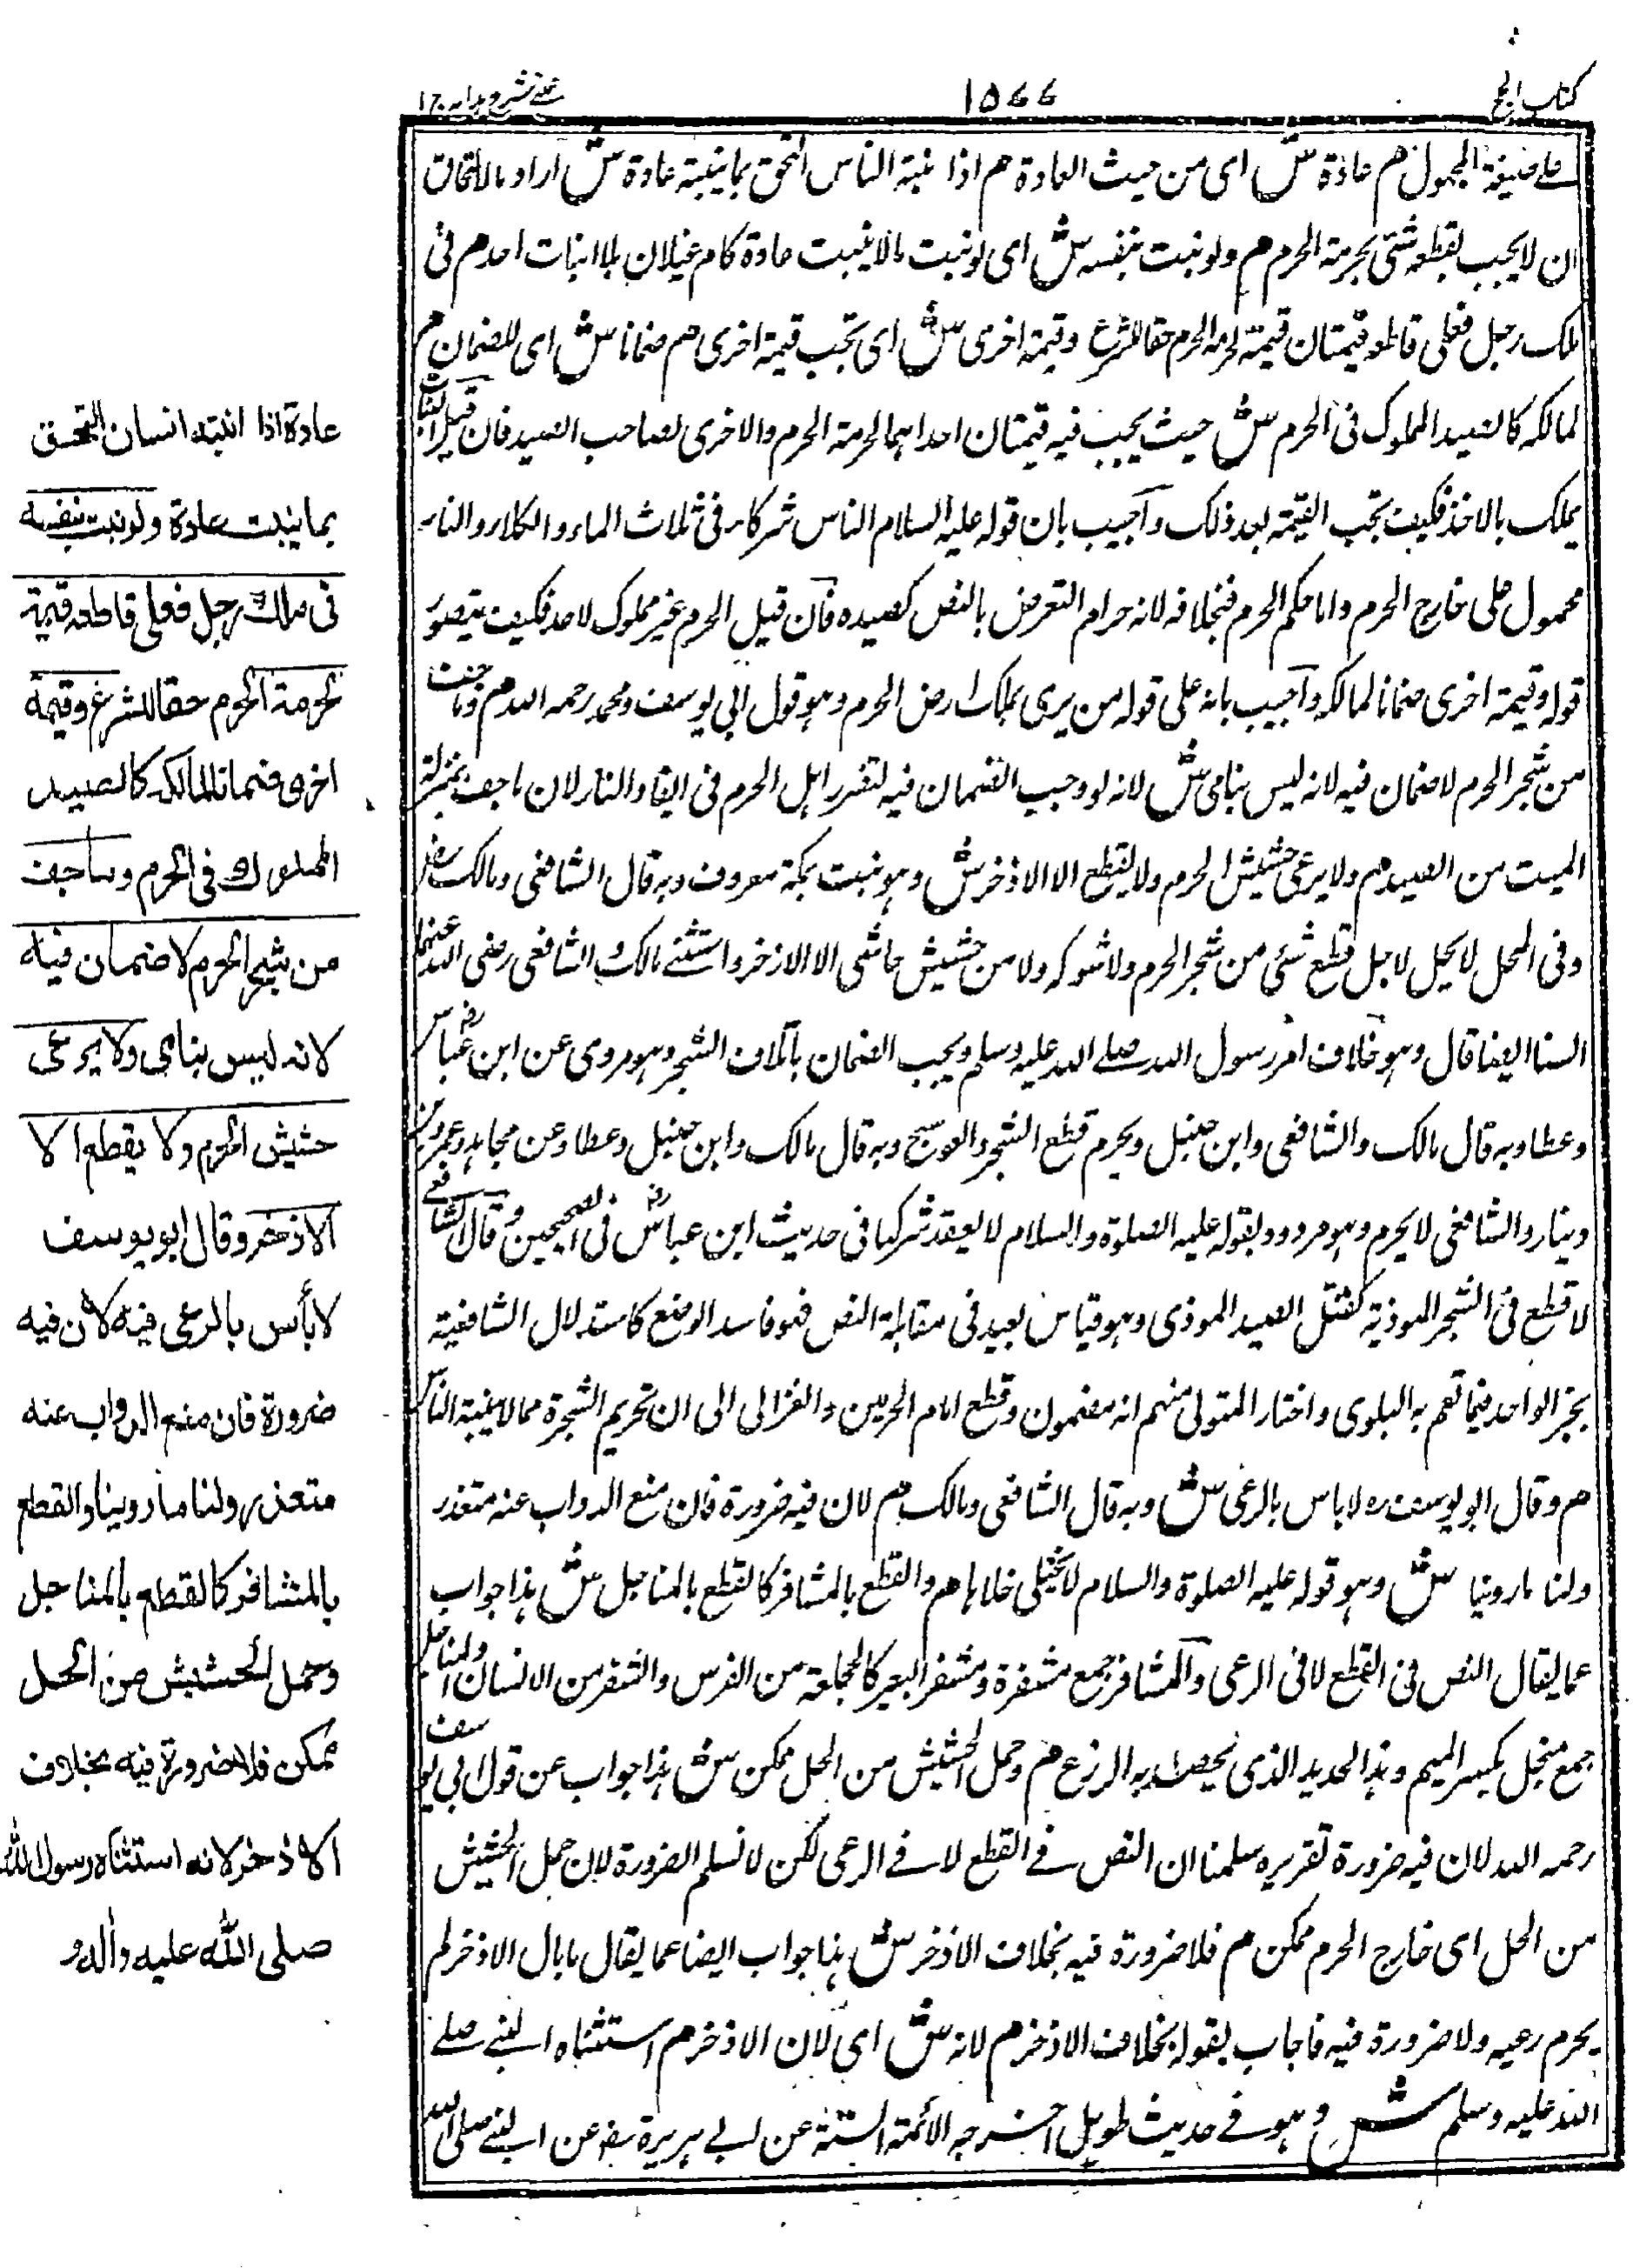 كتاب الحج
١٥٦٦
عيني شرح هدايه ج ١
على صيغة المجهول م عادة ش اى من حيث العادة م اذا نبته الناس التحق بما ينبت عادة ش اراد بالالتحاق
ان لا يجب بقطعه شئ لحرمة الحرم م ولو نبت بنفسه ش اى لو نبت مالا ينبت عادة كام غيلان بلا انبات احد م فى
ملك رجل فعلى قاطعه قيمتان قيمة لحرمة الحرم حقا للشرع وقيمة اخرى ش اى تجب قيمة اخرى م ضمانا ش اى للضمان م
لمالكه كالصيد المملوك فى الحرم ش حيث يجب فيه قيمتان احداهما لحرمة الحرم والاخرى لصاحب الصيد فان قيل النبات
يملك بالاخذ فكيف تجب القيمة بعد ذلك وآجيب بان قوله عليه السلام الناس شركاء فى ثلاث الماء والكلاء والنار
محمول على خارج الحرم واما حكم الحرم فبخلافه لانه حرام التعرض بالنص كصيده فآن قيل الحرم غير مملوك لاحد فكيف يتصور
قوله وقيمة اخرى ضمانا لمالكه وآجيب بانه على قول من يرى بملك ارض الحرم وهو قول ابى يوسف ومحمد رحمه الله م وما جف
من شجر الحرم لا ضمان فيه لانه ليس بنامى ش لانه لو وجب الضمان فيه لتضرر اهل الحرم فى ايقاد النار لان ما جف بمنزلة
الميت من الصيد م ولا يرعى حشيش الحرم ولا يقطع الا الاذخر ش وهو نبت بمكة معروف وبه قال الشافعى ومالك
وفى المحل لا يحل لاجل قطع شئ من شجر الحرم ولا شوكه ولا من حشيش حاشى الا الاذخر واستثنى مالك والشافعى رضى الله عنهما
السنا ايضا قال وهو خلاف امر رسول الله صلى الله عليه وسلم ويجب الضمان باتلاف الشجر وهو مروى عن ابن عباس رض
وعطا وبه قال مالك والشافعى وابن حنبل ويحرم قطع الشجر والعوسج وبه قال مالك وابن حنبل وعطا وعن مجاهد وعمرو بن
دينار والشافعى لا يحرم وهو مردود بقوله عليه الصلوة والسلام لا يعضد شوكها فى حديث ابن عباس رض فى الصحيحين وقال الشافعى
لا قطع فى الشجر الموذية كقتل الصيد الموذى وهو قياس بعيد فى مقابلة النص فهو فاسد الوضع كاستدلال الشافعية
بخبر الواحد فيما تعم به البلوى واختار المتولى منهم انه مضمون وقطع امام الحرمين والغزالى الى ان تحريم الشجرة مما لا ينبته الناس
م وقال ابو يوسف ره لا باس بالرعى ش وبه قال الشافعى ومالك م لان فيه ضرورة فان منع الدواب عنه متعذر
ولنا ما روينا ش وهو قوله عليه الصلوة والسلام لا يختلى خلاها م والقطع بالمشافر كالقطع بالمناجل ش هذا جواب
عما يقال النص فى القطع لا فى الرعى وآلمشافر جمع مشفرة ومشفر البعير كالجحافة من الفرس والشفر من الانسان والمناجل
جمع منجل بكسر الميم وهذا الحديد الذى يحصد به الزرع م وحمل الحشيش من الحل ممكن ش هذا جواب عن قول ابى يوسف
رحمه الله لان فيه ضرورة تقريره سلمنا ان النص فى القطع لا فى الرعى لكن لا نسلم الضرورة لان حمل الحشيش
من الحل اى خارج الحرم ممكن م فلا ضرورة فيه بخلاف الاذخر ش هذا جواب ايضا عما يقال ما بال الاذخر لم
يحرم رعيه ولا ضرورة فيه فاجاب بقوله بخلاف الاذخر م لانه ش اى لان الاذخر م استثناه النبى صلى
الله عليه وسلم ش وهو فى حديث طويل اخرجه الائمة الستة عن ابى هريرة رض عن النبى صلى الله
عادة اذا انبته انسان التحق
بما ينبت عادة ولو نبت بنفسه
فى ملك رجل فعلى قاطعه قيمة
لحرمة الحرم حقا للشرع وقيمة
اخرى ضمانا لمالكه كالصيد
المملوك فى الحرم وما جف
من شجر الحرم لا ضمان فيه
لانه ليس بنامى ولا يرعى
حشيش الحرم ولا يقطع الا
الاذخر وقال ابو يوسف
لا بأس بالرعى فيه لأن فيه
ضرورة فان منع الدواب عنه
متعذر ولنا ما روينا والقطع
بالمشافر كالقطع بالمناجل
وحمل الحشيش من الحل
ممكن فلا ضرورة فيه بخلاف
الاذخر لانه استثناه رسول الله
صلى الله عليه وآله و